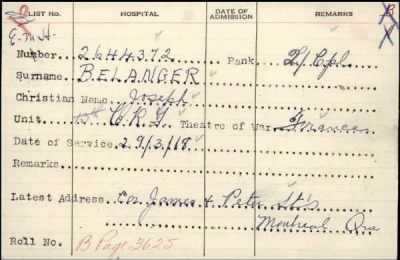 LIST NO. HOSPITAL DATE OF ADMISSION REMARKS
E.M.H.
Number 2644372 Rank 2/Cpl.
Surname BELANGER
Christian Name Joseph
Unit 10th C.R.T. Theatre of War France
Date of Service 29/3/18
Remarks
Latest Address Cor James & Peter St's
Montreal Que
Roll No. B Page 3625